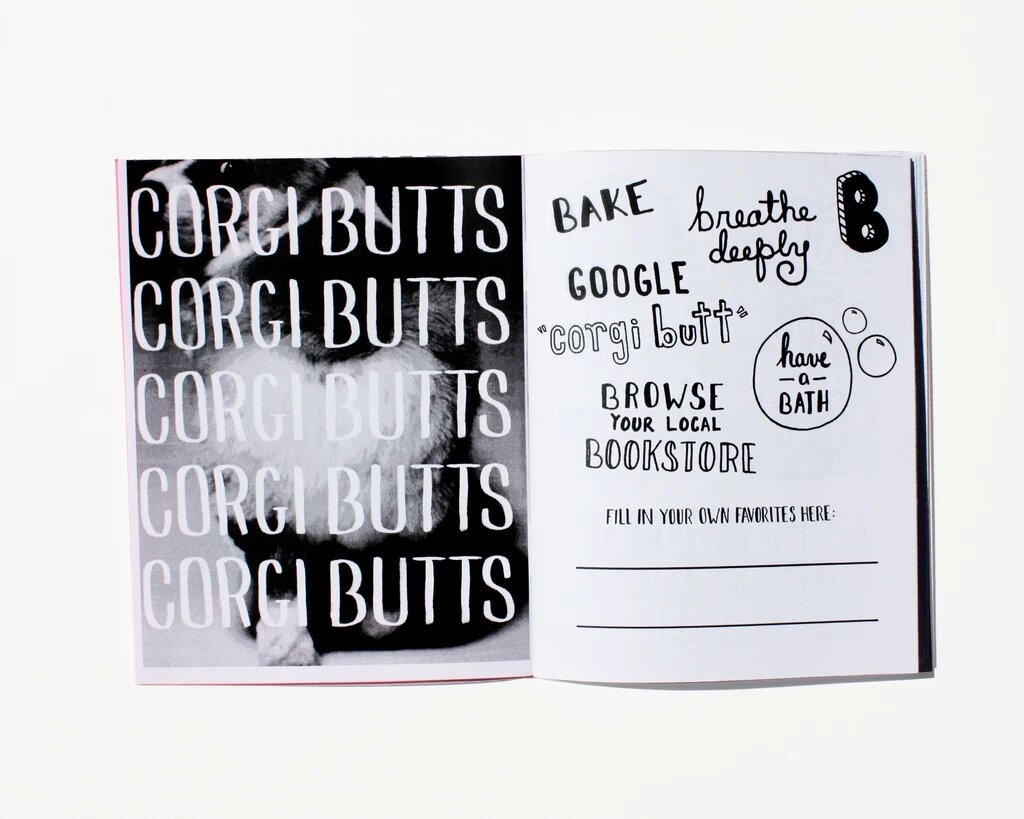 CORGI BUTTS
CORGI BUTTS
CORGI BUTTS
CORGI BUTTS
CORGI BUTTS
B
BAKE
breathe
deeply
GOOGLE
"corgi butt"
have
-a-
BATH
BROWSE
YOUR LOCAL
BOOKSTORE
FILL IN YOUR OWN FAVORITES HERE: